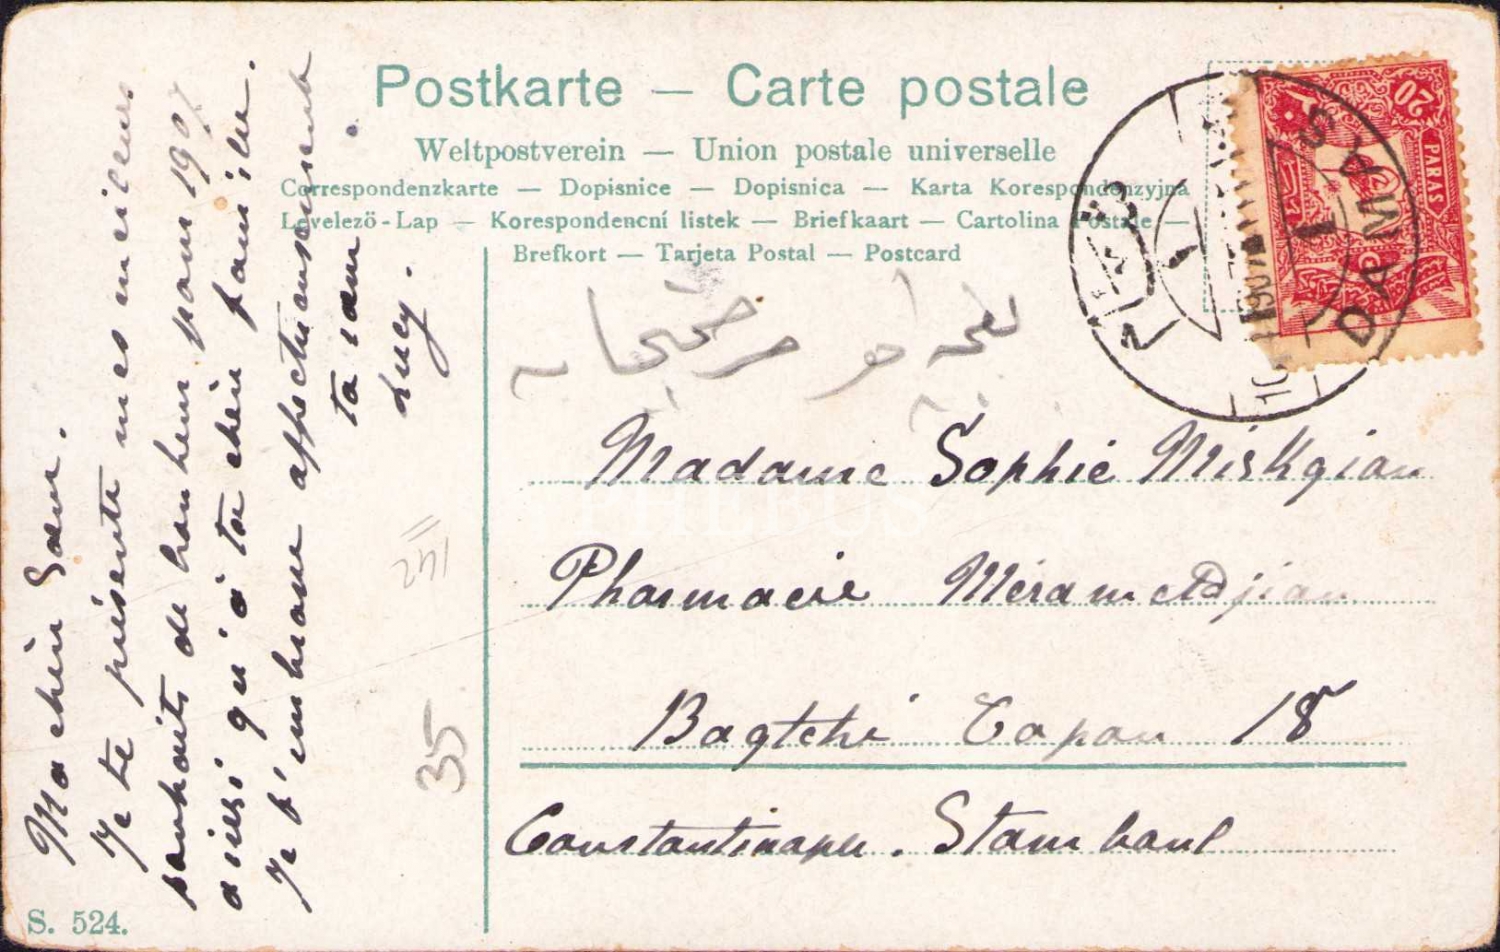 Postkarte — Carte postale
Weltpostverein — Union postale universelle
Correspondenzkarte — Dopisnice — Dopisnica — Karta Korespondenzyjna
Levelező-Lap — Korespondencní listek — Briefkaart — Cartolina Postale —
Brefkort — Tarjeta Postal — Postcard
20
PARAS
DAMAS
1
Madame Sophie Miskgian
Pharmacie Merametdjian
Bagtché Capou 18
Constantinople. Stamboul
Ma chère Sœur.
Je te présente mes meilleurs
souhaits de bonheur pour 1907
ainsi qu'à ta chère famille.
Je t'embrasse affectueusement
ta sœur
Lucy.
35
PHEBUS
S. 524.